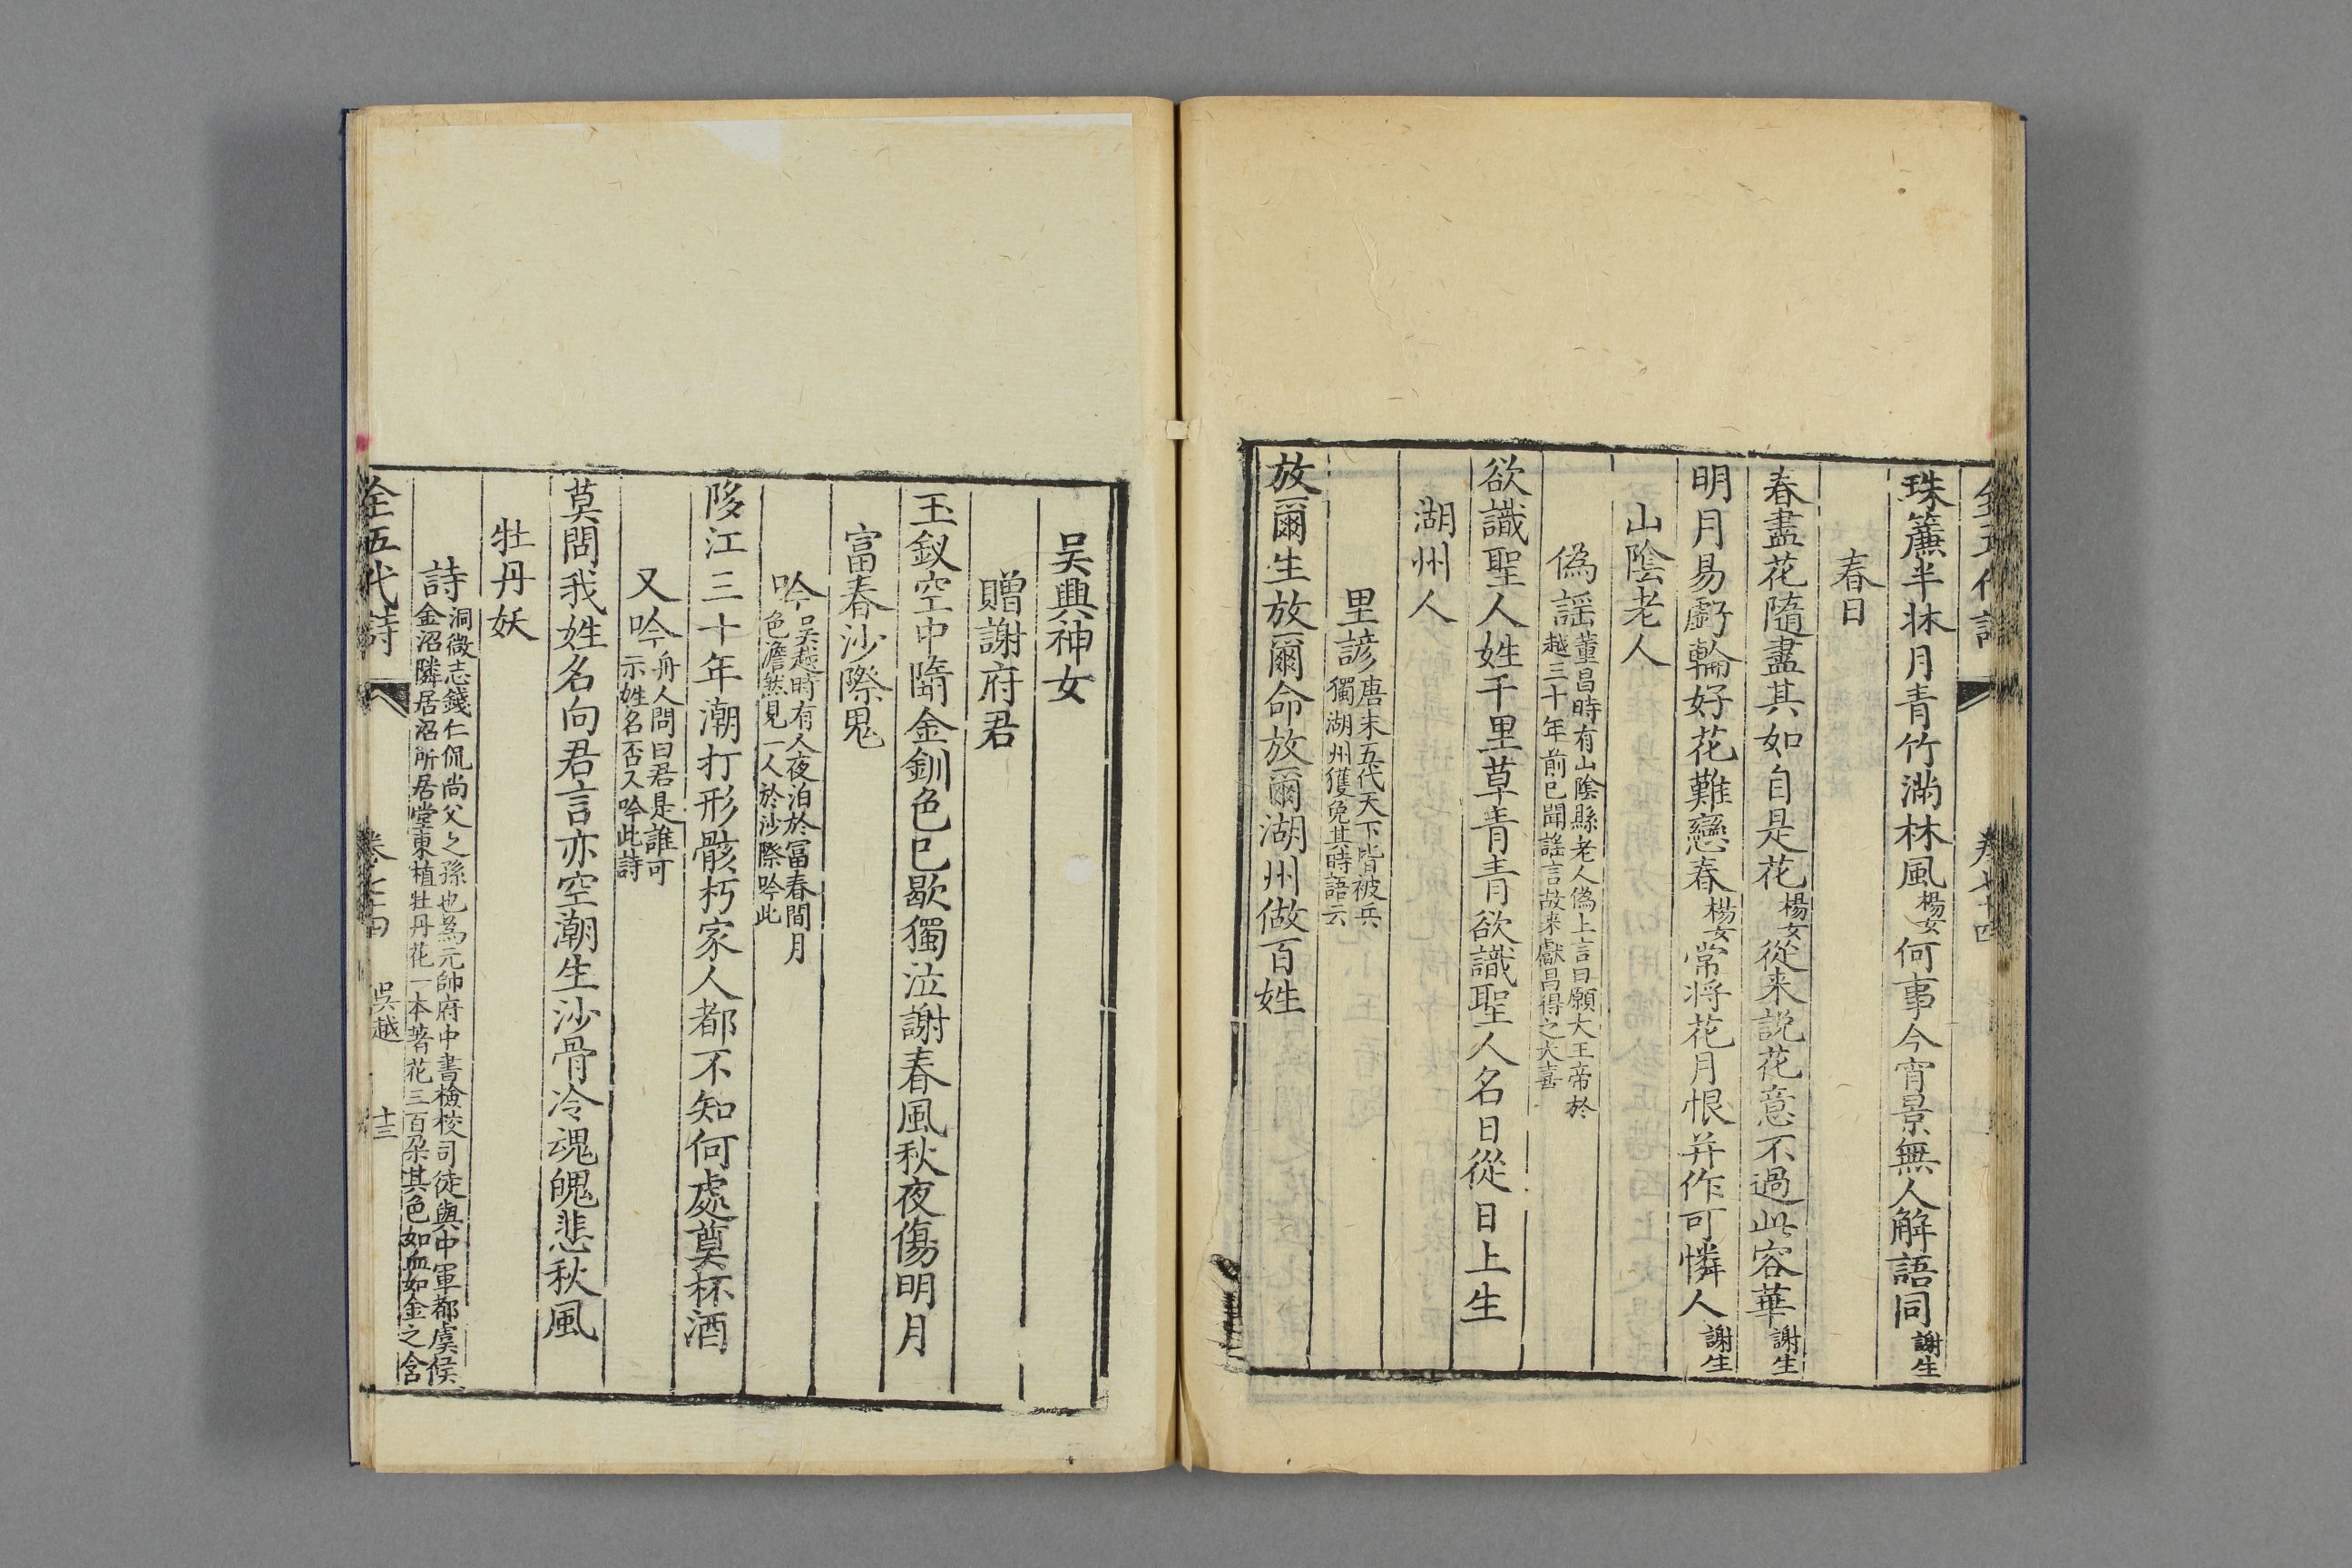 珠簾半牀月青竹滿林風楊女何事今宵景無人解語同謝生
春日
春盡花隨盡其如自是花楊女從来説花意不過此容華謝生
明月易虧輪好花難戀春楊女常將花月恨并作可憐人謝生
山陰老人
偽謡董昌時有山陰縣老人偽上言曰願大王帝於
越三十年前已聞謡言故来獻昌得之大喜
欲識聖人姓千里草青青欲識聖人名日從日上生
湖州人
里諺唐末五代天下皆被兵
獨湖州獲免其時語云
放爾生放爾命放爾湖州做百姓
吴興神女
贈謝府君
玉釵空中隋金釧色已歇獨泣謝春風秋夜傷明月
富春沙際鬼
吟吴越時有人夜泊於富春間月
色澹然見一人於沙際吟此
陊江三十年潮打形骸朽家人都不知何處奠杯酒
又吟舟人問曰君是誰可
示姓名否又吟此詩
莫問我姓名向君言亦空潮生沙骨冷魂魄悲秋風
牡丹妖
詩洞微志錢仁侃尚父之孫也為元帥府中書檢校司徒與中軍都虞候
金沼隣居沼所居堂東植牡丹花一本著花三百朶其色如血如金之含
全五代詩 卷七十四 吳越 十三